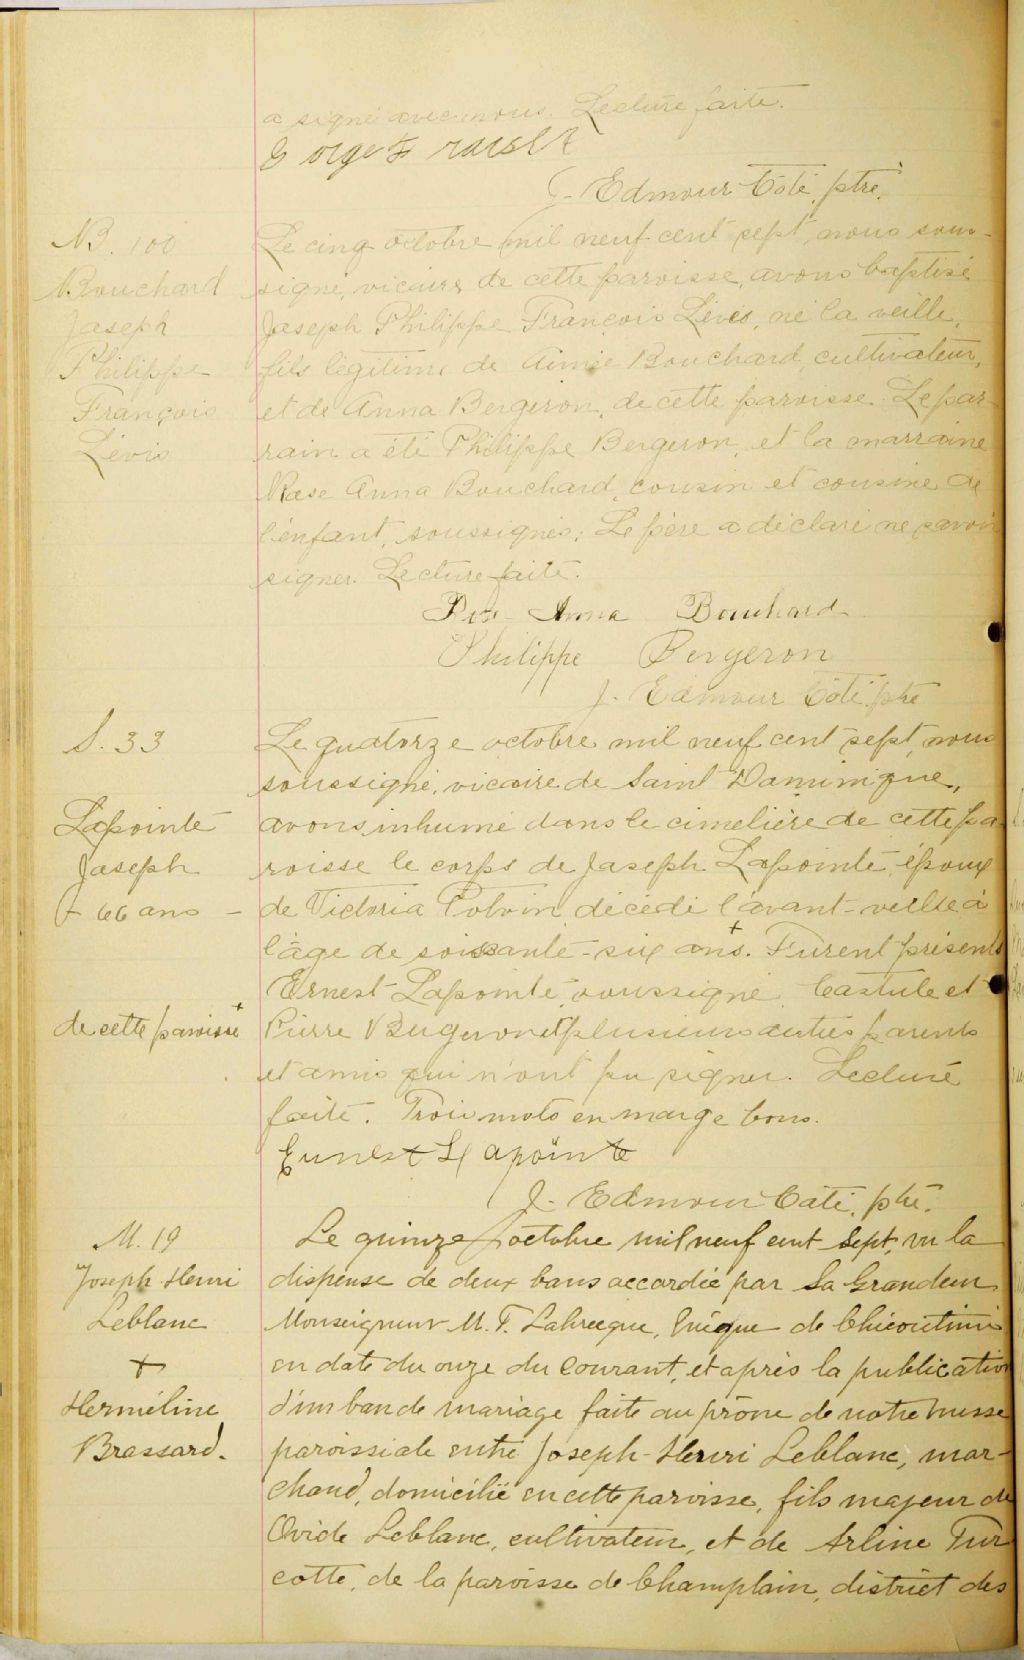 a signé avec nous. Lecture faite.
J. Edmour Côté, ptre.
B. 100
Bouchard
Joseph
Philippe
François
Lévis
Le cinq octobre mil neuf cent sept, nous sous-
signé, vicaire de cette paroisse, avons baptisé
Joseph Philippe François Lévis, né la veille,
fils légitime de Aimée Bouchard, cultivateur,
et de Anna Bergeron, de cette paroisse. Le par-
rain a été Philippe Bergeron, et la marraine
Rose Anna Bouchard, cousin et cousine de
l'enfant, soussignés; Le père a déclaré ne savoir
signer. Lecture faite.
Anna Bouchard
Philippe Bergeron
J. Edmour Côté ptre
S. 33
Lapointe
Joseph
66 ans -
de cette paroisse +
Le quatorze octobre mil neuf cent sept, nous
soussigné, vicaire de Saint Dominique,
avons inhumé dans le cimetière de cette pa-
roisse le corps de Joseph Lapointe, époux
de Victoria Potvin décédé l'avant-veille à
l'âge de soixante-six ans. + Furent présents
Ernest Lapointe soussigné, Castule et
Pierre Bergeron et plusieurs autres parents
et amis qui n'ont pu signer. Lecture
faite. Trois mots en marge bons.
Ernest Lapointe
J. Edmour Côté, ptre.
M. 19
Joseph-Henri
Leblanc
+
Herméline
Brassard.
Le quinze octobre mil neuf cent sept, vu la
dispense de deux bans accordée par Sa Grandeur
Monseigneur M. T. Labrecque, Evêque de Chicoutimi
en date du onze du courant, et après la publication
d'un ban de mariage faite au prône de notre messe
paroissiale entre Joseph-Henri Leblanc, mar-
chand, domicilié en cette paroisse, fils majeur de
Ovide Leblanc, cultivateur, et de Arline Tur
cotte, de la paroisse de Champlain, district des